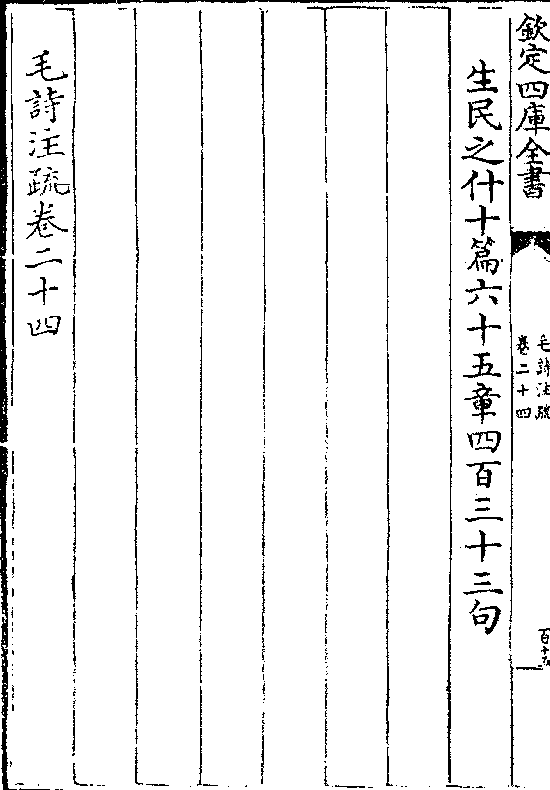 欽定四庫全書
毛詩注疏
卷二十四
生民之什十篇六十五章四百三十三句
毛詩注疏卷二十四